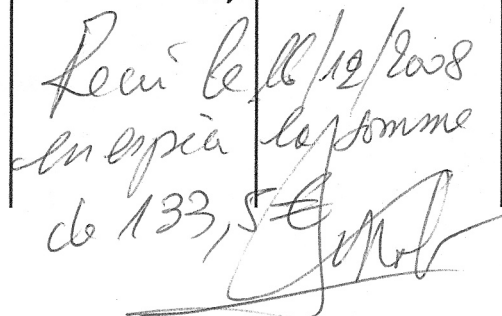 Reçu le 16/12/2008
en espèce la somme
de 133,5 €